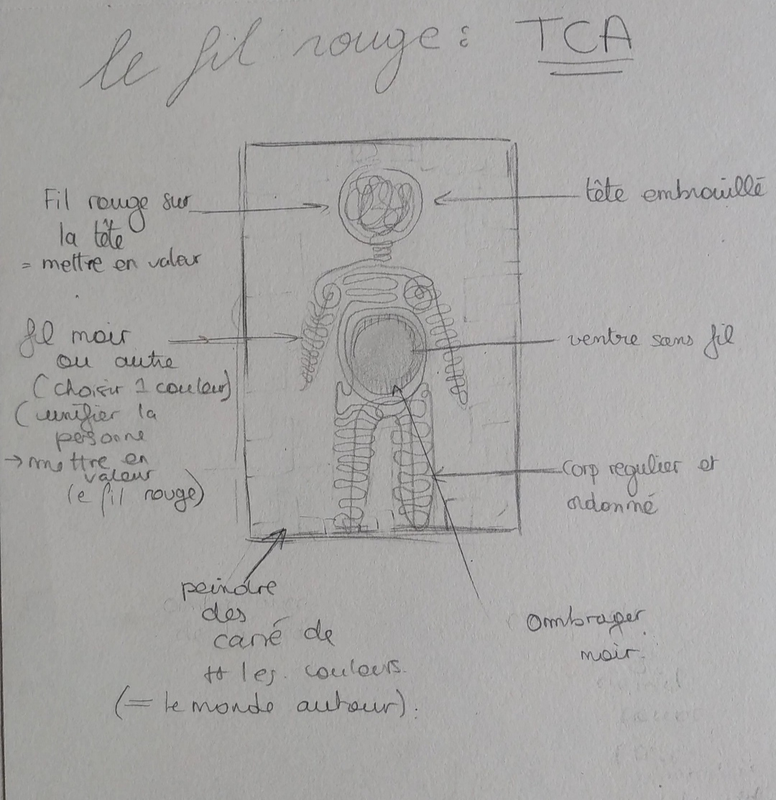 le fil rouge : TCA
Fil rouge sur
la tête
= mettre en valeur
tête embrouillé
fil noir
ou autre
(choisir 1 couleur)
(unifier la
personne
→ mettre en
valeur
le fil rouge)
ventre sans fil
corp regulier et
ordonné
peindre
des
carré de
tt les couleurs.
(= le monde autour).
ombrager
noir.